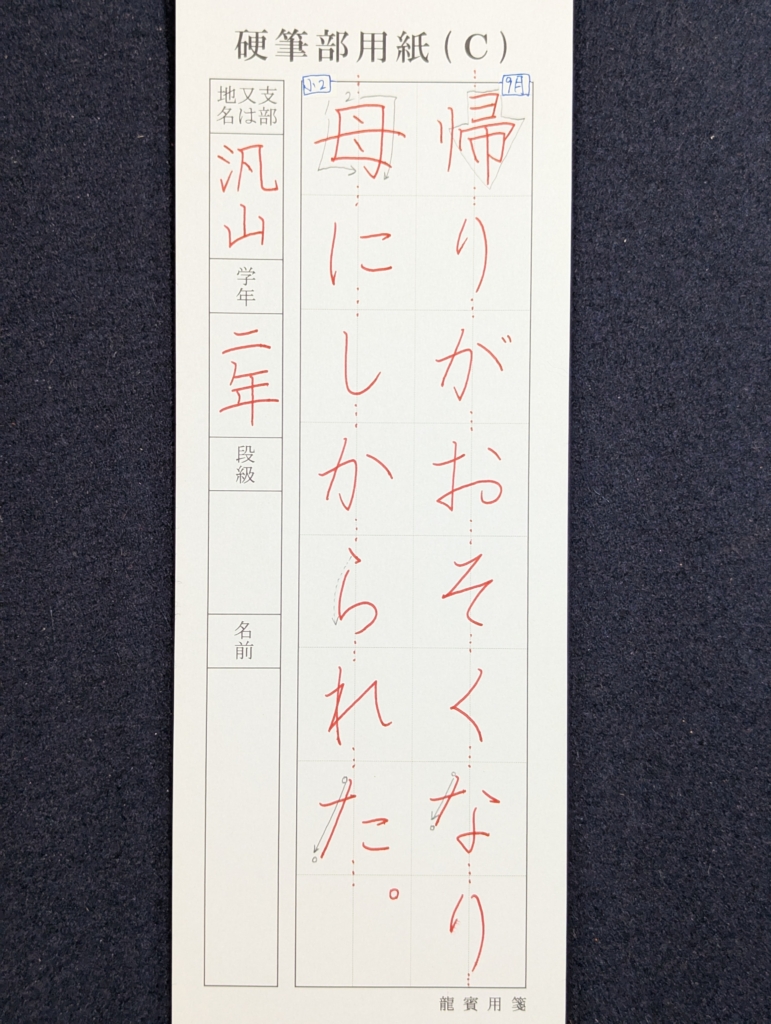 硬筆部用紙(C)
9月
小2
帰りがおそくなり
母にしかられた。
1 2
支部又は地名
汎山
学年
二年
段級
名前
龍賓用箋